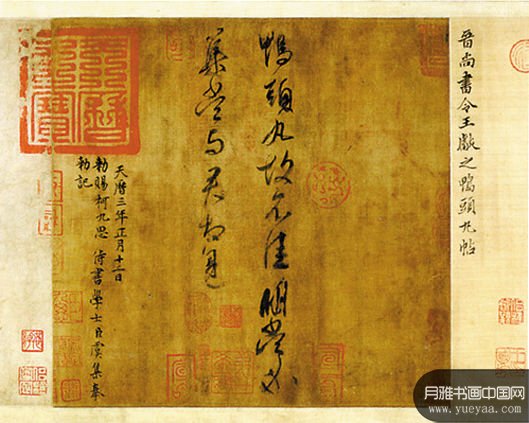 晉尚書令王獻之鴨頭丸帖
鴨頭丸故不佳明當必
集當與君相見
天曆之寶
天曆三年正月十二日
敕賜柯九思侍書學士臣虞集奉
敕記
月雅书画中国网
www.yueyaa.com